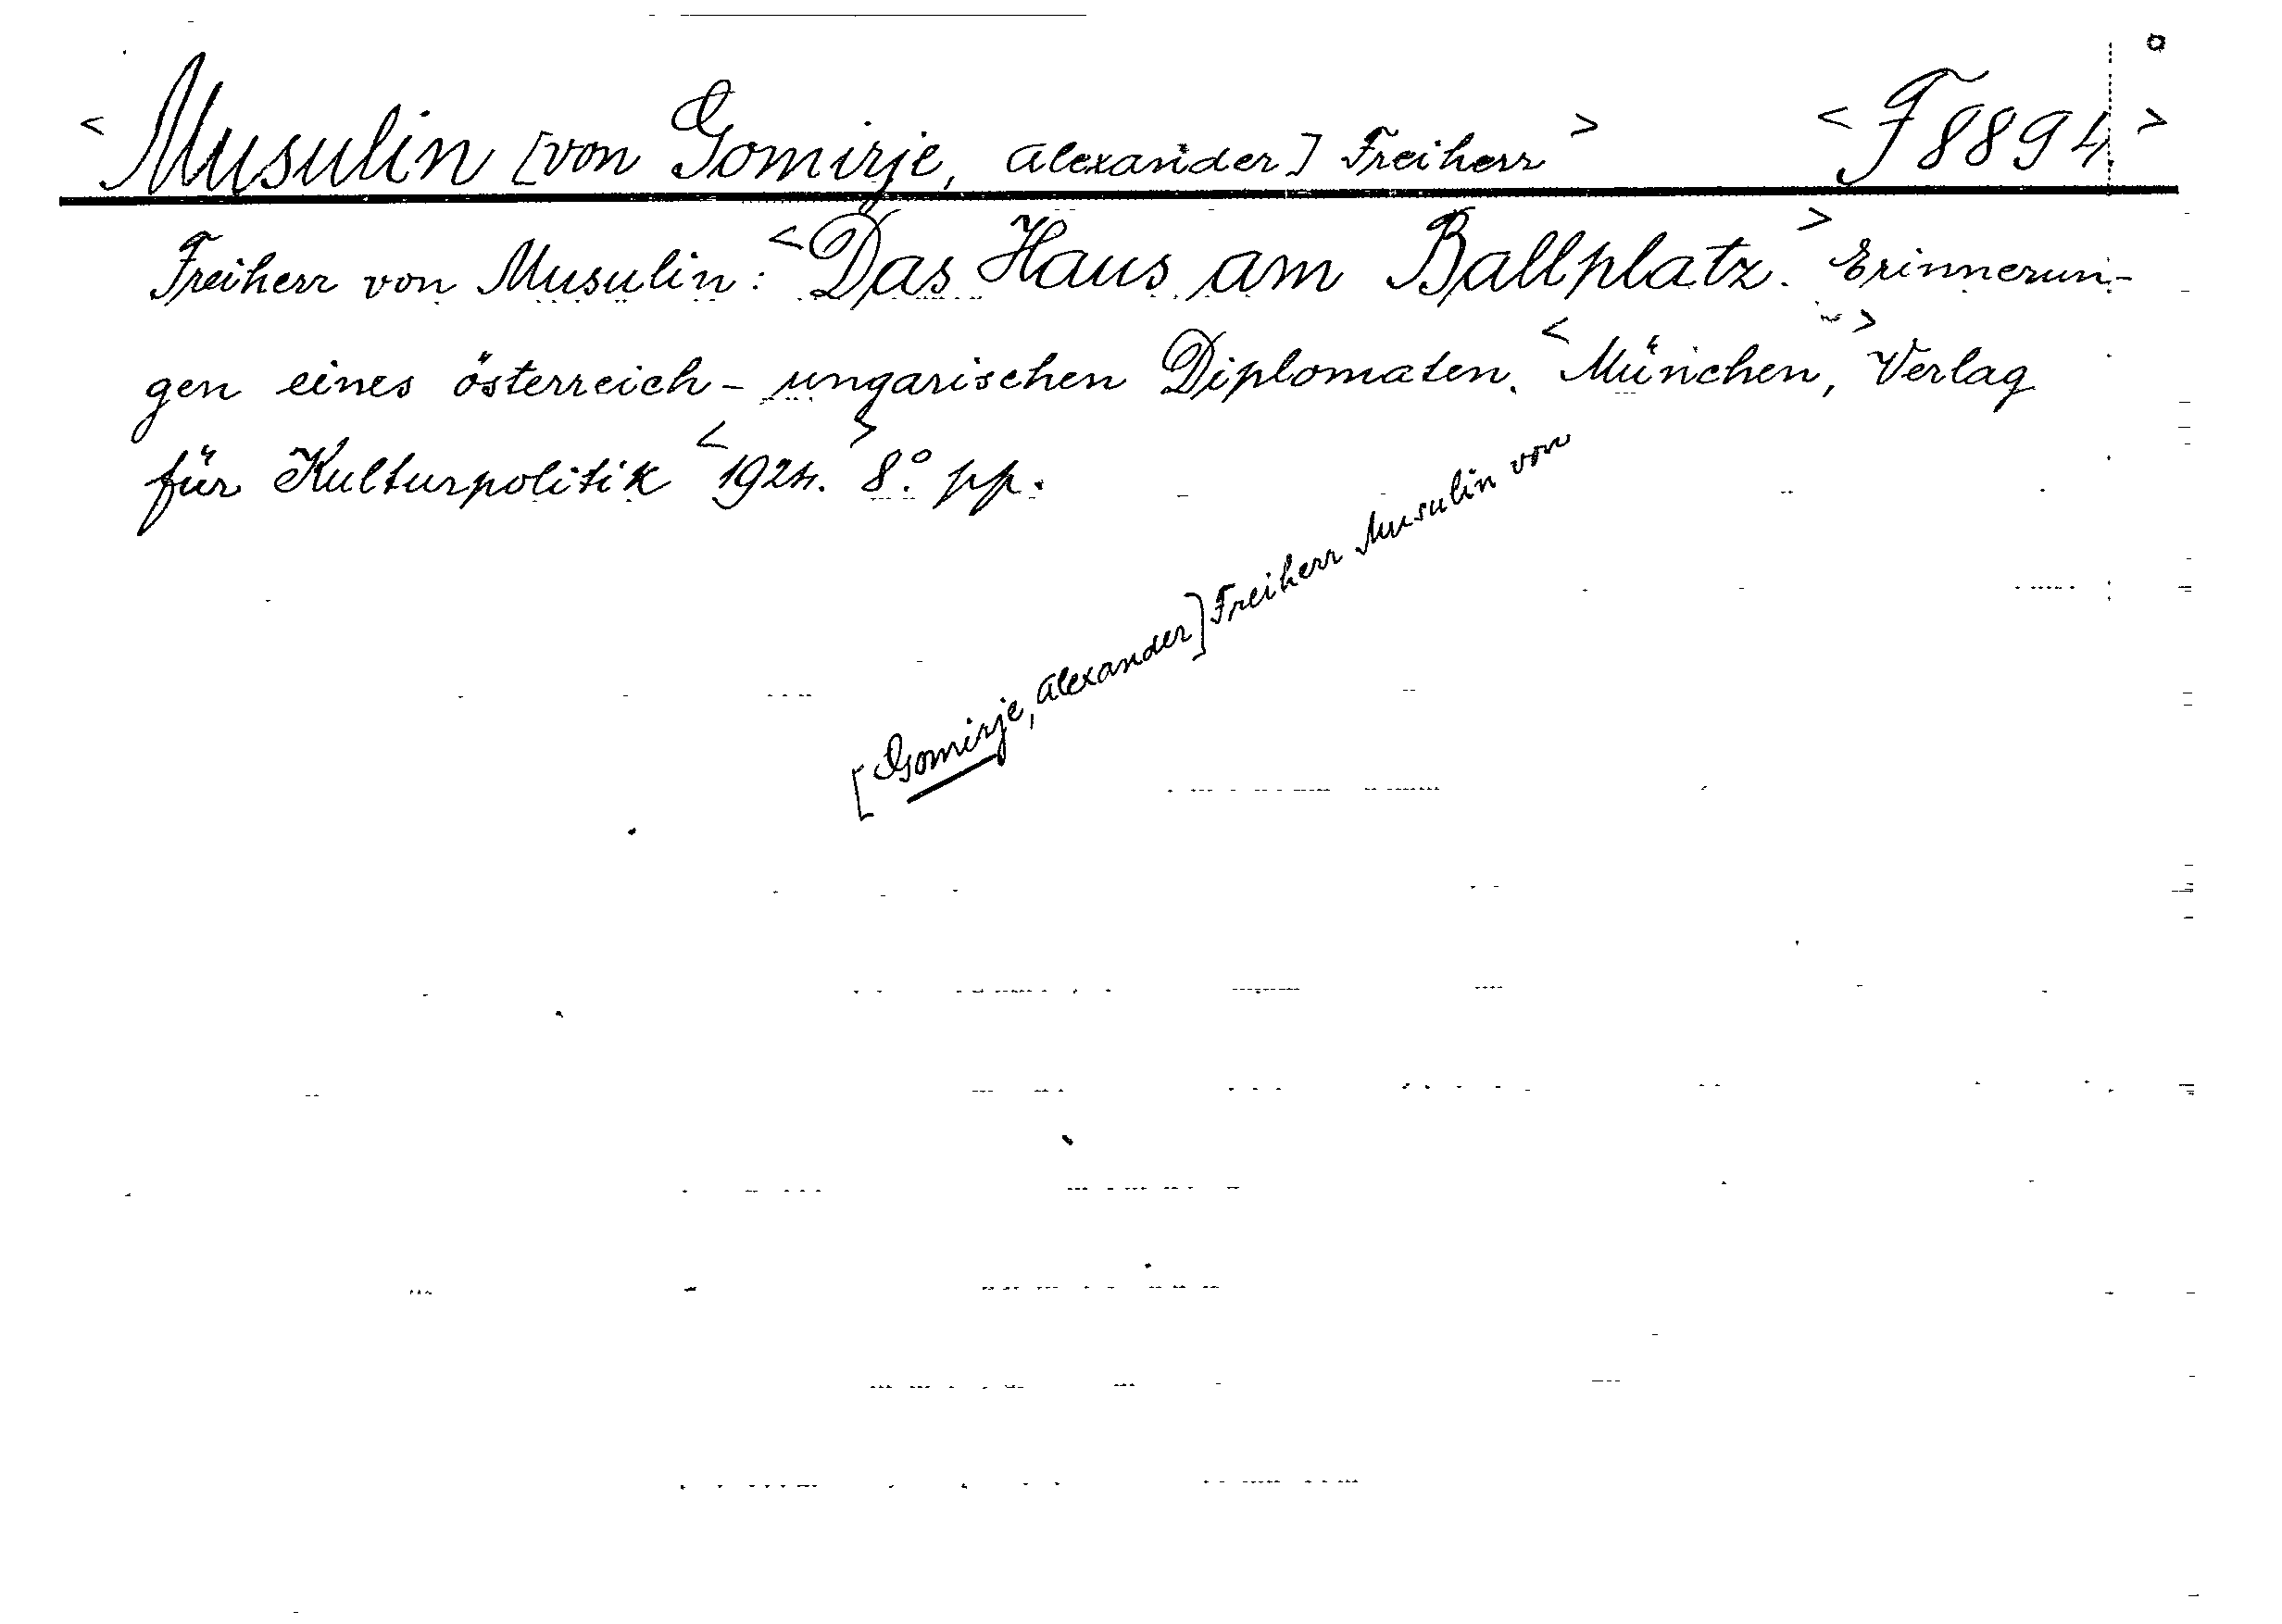 <Musulin [von Gomirje, Alexander] Freiherr> <F 8894>
Freiherr von Musulin: <Das Haus am Ballplatz.> Erinnerun-
gen eines österreich-ungarischen Diplomaten. <München,> Verlag
für Kulturpolitik <1924.> 8° pp.
[Gomirje, Alexander] Freiherr Musulin von